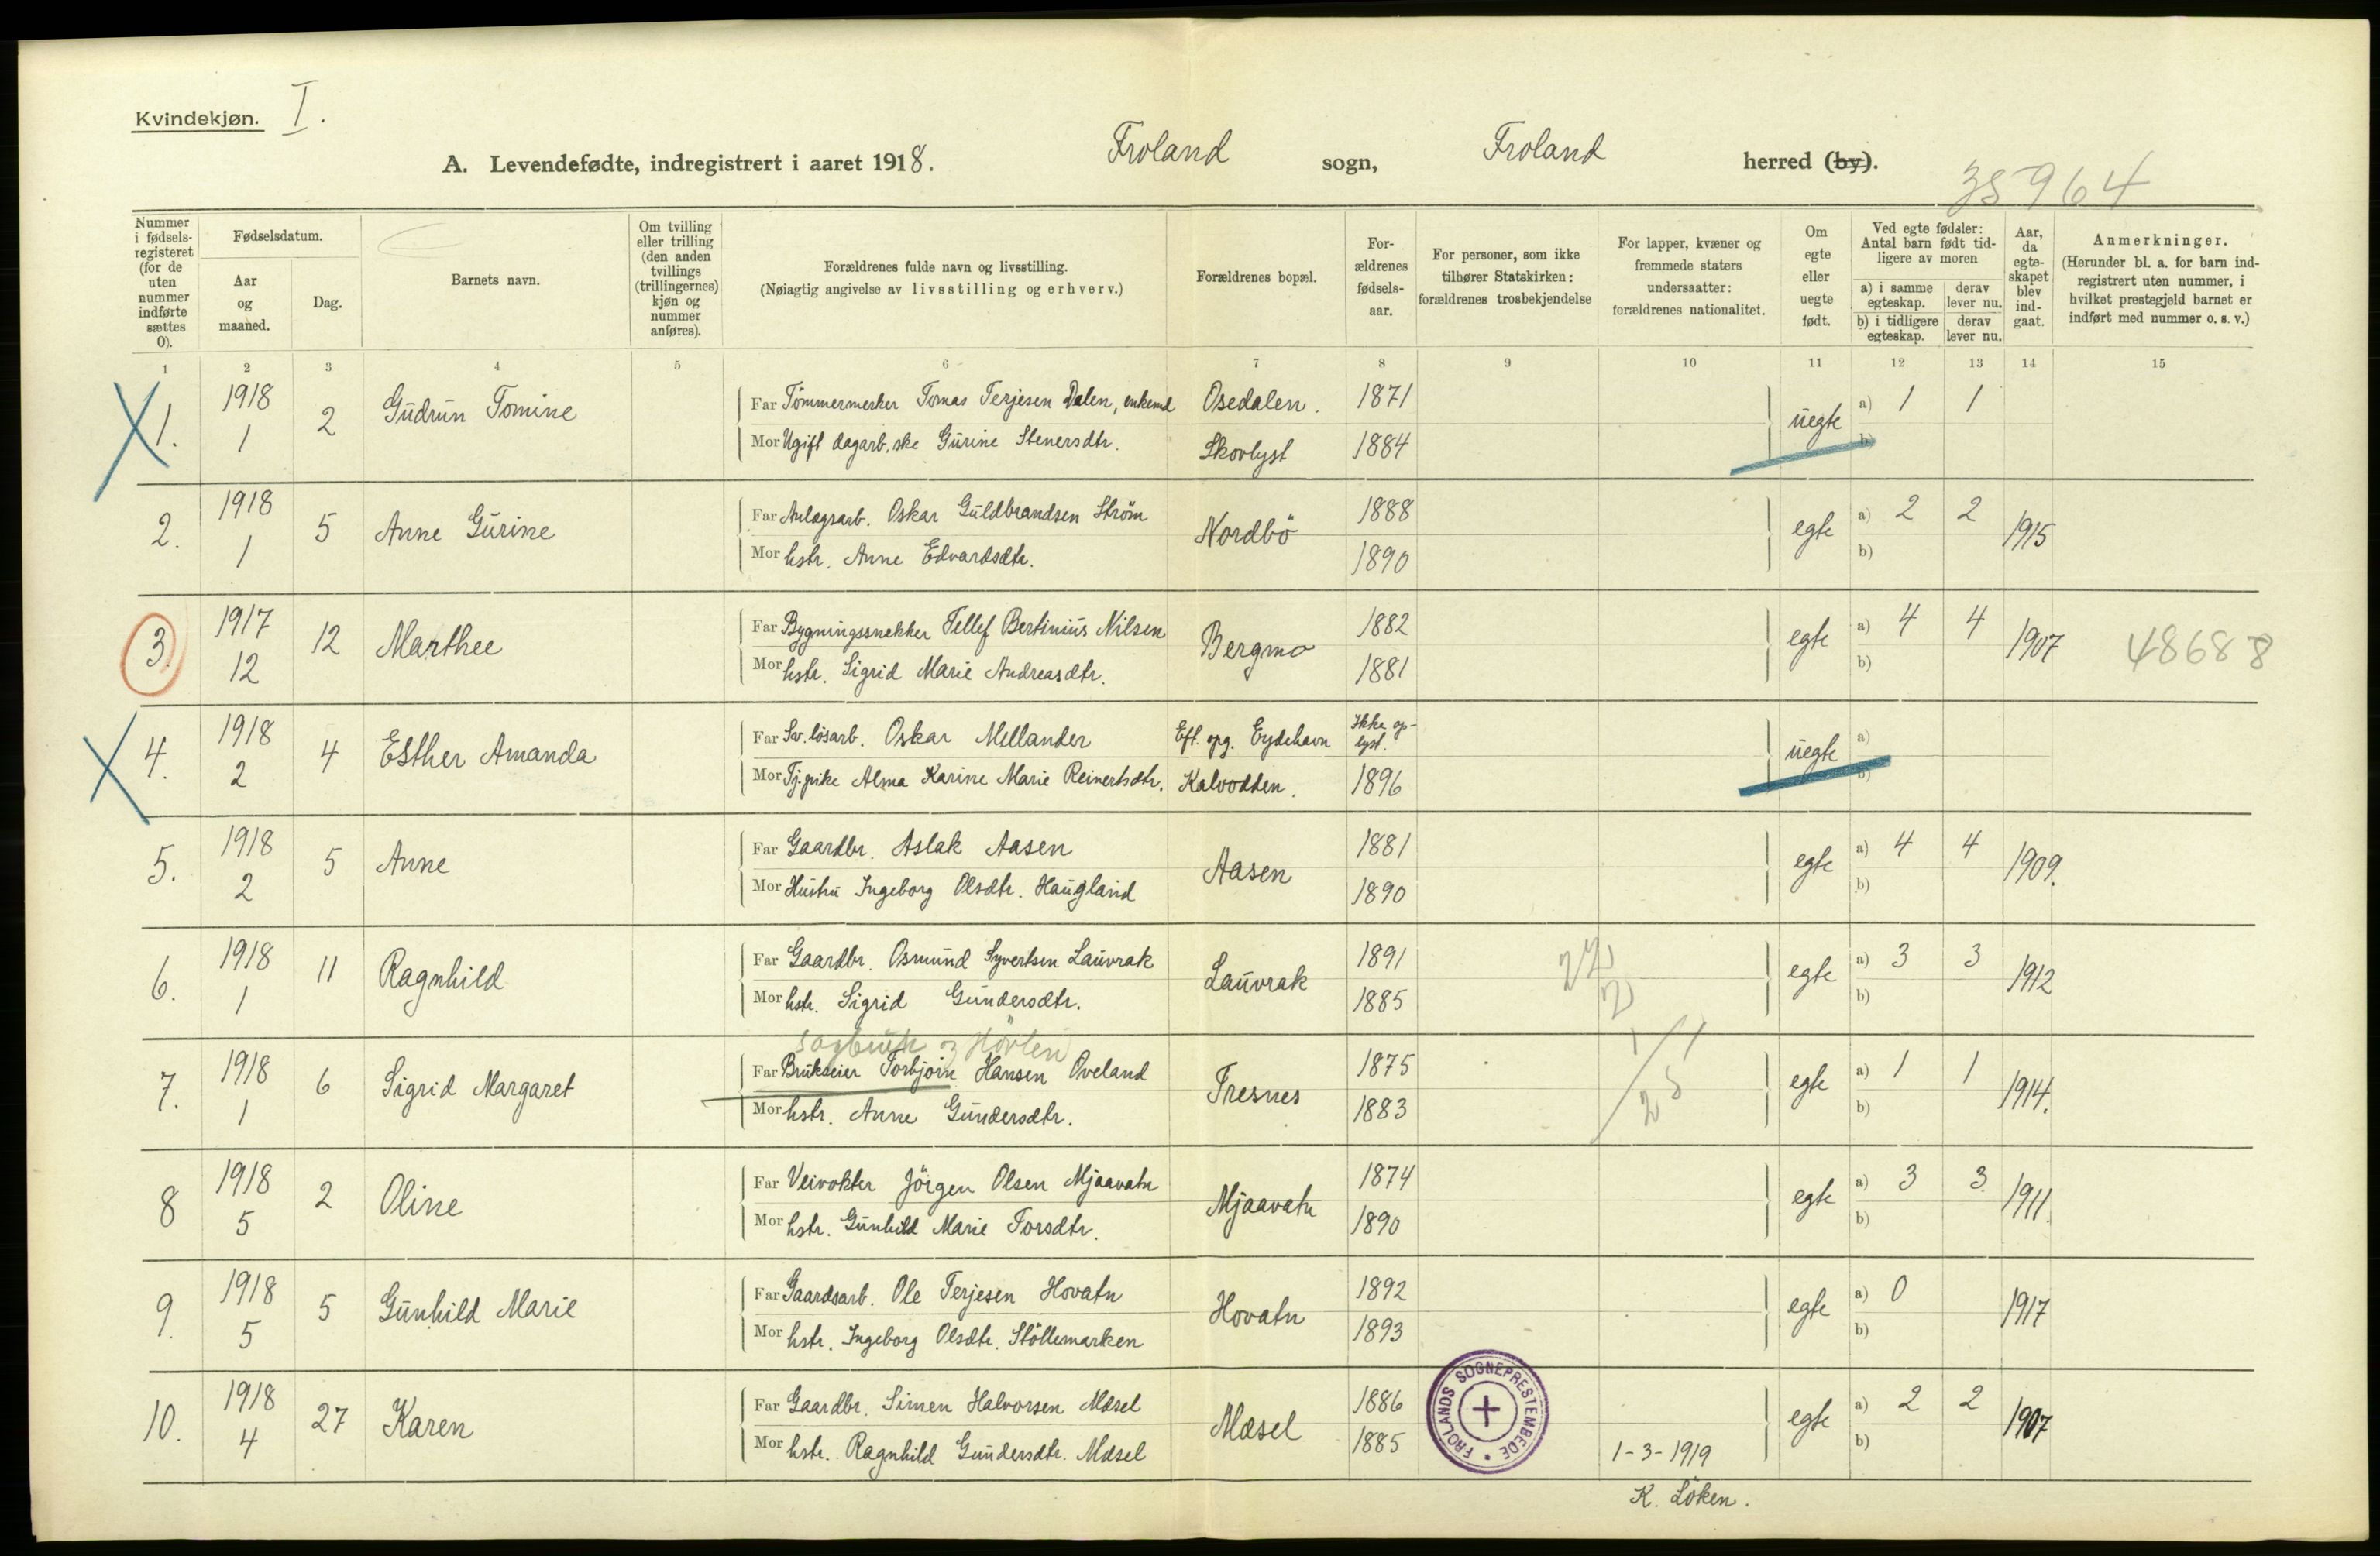 Kvindekjøn. I.
A. Levendefødte, indregistrert i aaret 1918. Froland sogn, Froland herred (by).
35964
Nummer i fødsels-registeret (for de uten nummer indførte sættes 0).
Fødselsdatum.
Aar og maaned.
Dag.
Barnets navn.
Om tvilling eller trilling (den anden tvillings (trillingernes) kjøn og nummer anføres).
Forældrenes fulde navn og livsstilling.
(Nøiagtig angivelse av livsstilling og erhverv.)
Forældrenes bopæl.
For-ældrenes fødsels-aar.
For personer, som ikke tilhører Statskirken: forældrenes trosbekjendelse
For lapper, kvæner og fremmede staters undersaatter: forældrenes nationalitet.
Om egte eller uegte født.
Ved egte fødsler: Antal barn født tid-ligere av moren
a) i samme egteskap. derav lever nu.
b) i tidligere egteskap. derav lever nu.
Aar, da egte-skapet blev ind-gaat.
Anmerkninger.
(Herunder bl. a. for barn ind-registrert uten nummer, i hvilket prestegjeld barnet er indført med nummer o. s. v.)
1 2 3 4 5 6 7 8 9 10 11 12 13 14 15
1. 1918 1 2 Gudrun Tomine
Far Tömmermerker Tomas Terjesen Dalen, enkemd Osedalen. 1871
Mor Ugift dagarb.ske Gurine Stenersdtr. Skovlyst 1884
uegte a) 1 1
b)
2. 1918 1 5 Anne Gurine
Far Anlægsarb. Oskar Guldbrandsen Ström Nordbö 1888
Mor hstr. Anne Edvardsdtr. 1890
egte a) 2 2 1915
b)
3. 1917 12 12 Marthee
Far Bygningssnekker Tellef Bertinius Nilsen Bergmo 1882
Mor hstr. Sigrid Marie Andreasdtr. 1881
egte a) 4 4 1907 48688
b)
4. 1918 2 4 Esther Amanda
Far Sv. lösarb. Oskar Mellander Eft. opg. Eydehavn Ikke op-lyst.
Mor Tj.pike Alma Karine Marie Reinertsdtr. Kalvodden. 1896
uegte a)
b)
5. 1918 2 5 Anne
Far Gaardbr. Aslak Aasen Aasen 1881
Mor Hustru Ingeborg Olsdtr. Haugland 1890
egte a) 4 4 1909.
b)
6. 1918 1 11 Ragnhild
Far Gaardbr. Osmund Syvertsen Lauvrak Lauvrak 1891
Mor hstr. Sigrid Gundersdtr. 1885
egte a) 3 3 1912
b)
7. 1918 1 6 Sigrid Margaret
sagbruk og Hövleri
Far Brukseier Torbjörn Hansen Oveland Tresnes 1875
Mor hstr. Anne Gundersdtr. 1883
egte a) 1 1 1914.
b)
8 1918 5 2 Oline
Far Veivokter Jörgen Olsen Mjaavatn Mjaavatn 1874
Mor hstr. Gunhild Marie Torsdtr. 1890
egte a) 3 3. 1911.
b)
9. 1918 5 5 Gunhild Marie
Far Gaardsarb. Ole Terjesen Hovatn Hovatn 1892
Mor hstr. Ingeborg Olsdtr. Stöllemarken 1893
egte a) 0 1917
b)
10. 1918 4 27 Karen
Far Gaardbr. Simen Halvorsen Mæsel Mæsel 1886
Mor hstr. Ragnhild Gundersdtr. Mæsel 1885
egte a) 2 2 1907
b)
FROLANDS SOGNEPRESTEMBEDE
1-3-1919
K. Löken.